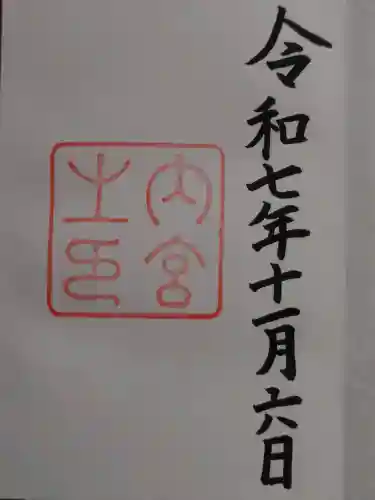 令和七年十一月六日
内宮之印